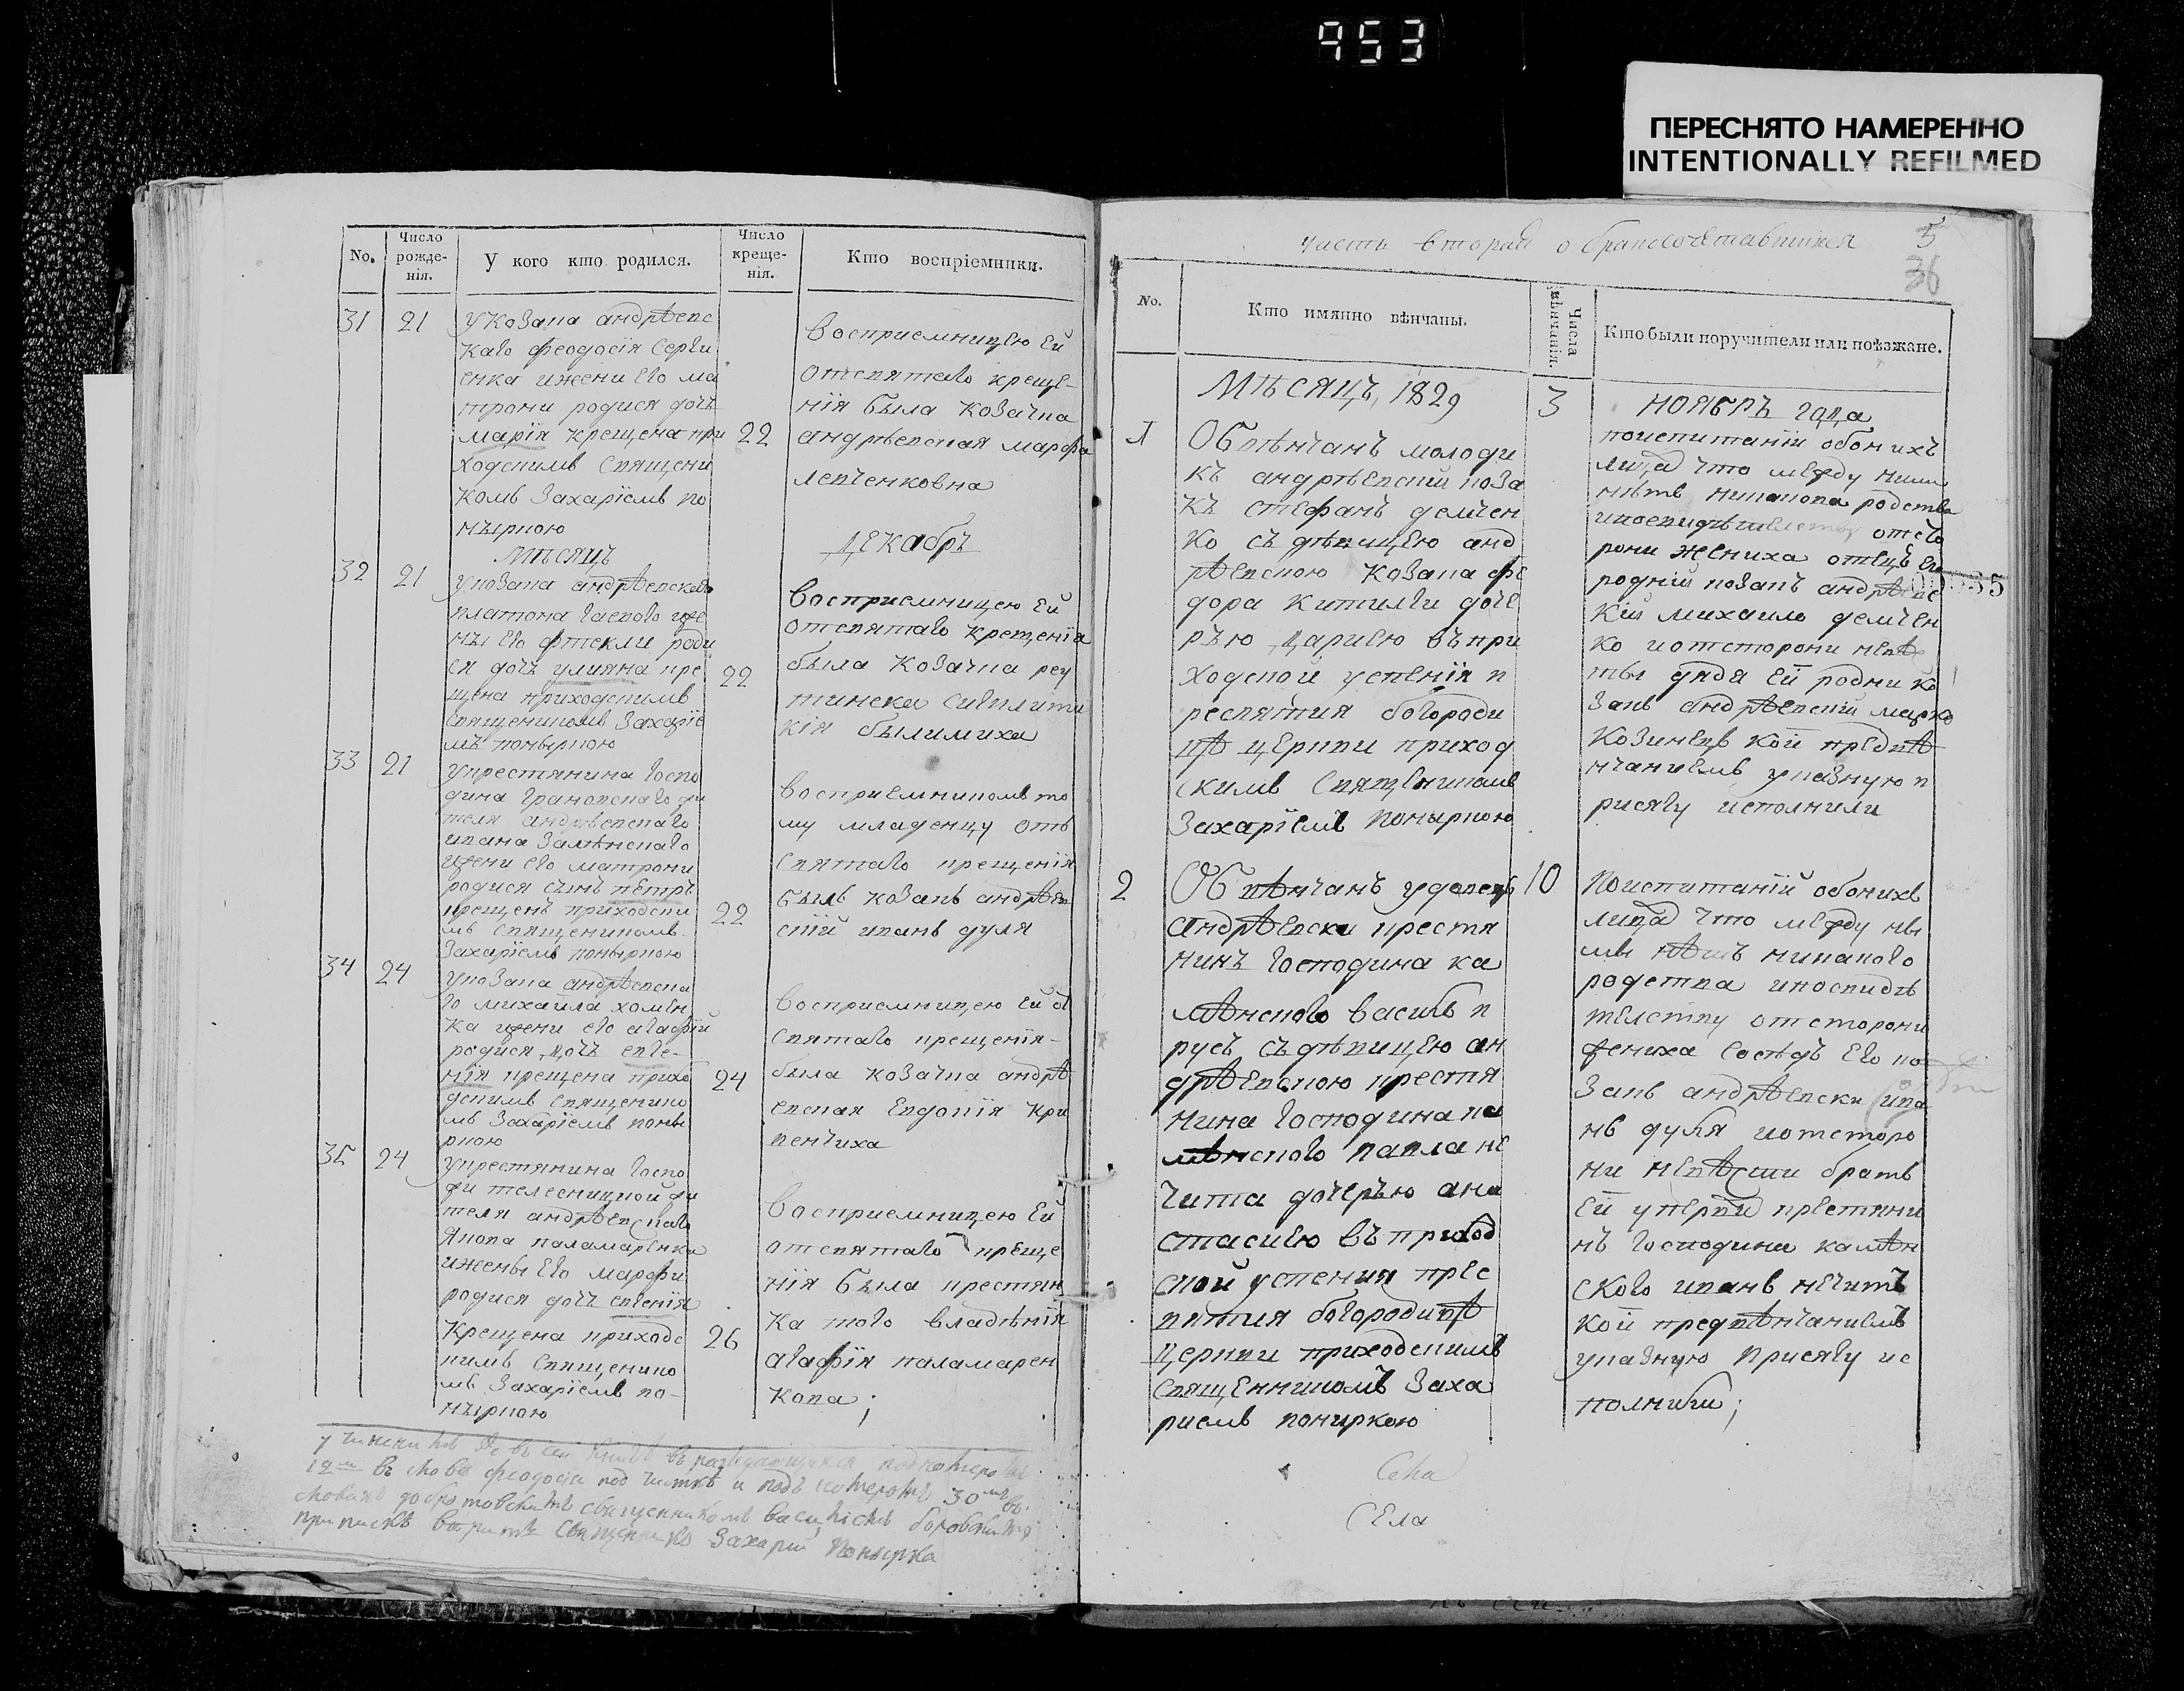 953
ПЕРЕСНЯТО НАМЕРЕННО
INTENTIONALLY REFILMED
No.
Число рожде-нія.
У кого кто родился.
Число креще-нія.
Кто воспріемники.
31 21
У Козака андрѣевс
каго феодосія Серги
енка ижени его ма
трони родися дочь
марія крещена при
ходскимъ Священи
комъ Захаріемъ по
ныркою
22
восприемницею ей
отсвятаго креще-
нія была козачка
андрѣевская марфа
левченковна
мѣсяцъ
декабрь
32 21
укозака андрѣевскаго
платона
ны его фтекли роди
ся дочь улияна кре
щена приходскимъ
священикомъ Захаріе
мъ поныркою
22
восприемницею ей
отсвятаго крещенія
была козачка
кія
33 21
укрестянина госпо
дина
теля андрѣевскаго
ивана
ижени его матрони
родися сынъ петръ
крещенъ приходски
мъ священикомъ
Захаріемъ поныркою
22
восприемникомъ то
му младенцу отъ
святаго крещенія
былъ козакъ андрѣев
скій иванъ дуля
34 24
укозака андрѣевска
го михайла хомен
ка ижени его агафій
родися дочь евге-
нія крещена прихо
дскимъ священико
мъ Захаріемъ поны
ркою
24
восприемницею ей от
святаго крещенія
была козачка андрѣ
евская Евдокія кри
венчиха
35 24
укрестянина госпо
жи телесницкой жи
теля андрѣевскаго
якова паламаренка
ижены его марфи
родися дочь евгенія
крещена приходс
кимъ священико
мъ Захаріемъ по-
ныркою
26
восприемницею ей
отсвятаго креще
нія была крестян
ка того владѣнія
агафія паламарен
кова;
12
феодосія
30
священникомъ
священникъ Захарій Понырка
часть вторая о бракосочетавшихся
5
36
No.
Кто имянно вѣнчаны.
Числа вѣнчанія.
Кто были поручители или поѣзжане.
мѣсяцъ, 1829
3
ноябрь года
1
Обвѣнчанъ молоди
къ андрѣевскій коза
къ стефанъ демчен
ко съ дѣвицею анд
рѣевскою козака фе
дора китилги доче
рью дариею въ при
ходской успенія п
ресвятия богороди
цѣ церкви приход
скимъ Священикомъ
Захаріемъ Поныркою
поиспитаніи обоихъ
лицъ что между ними
нѣтъ никакова родства
отсто
рони жениха отецъ его
родній козакъ андрѣевс
кій михайло демчен
ко иотсторони невѣ
сты дядя ей родни ко
закъ андрѣевскій марко
козинецъ кой предвѣ
нчаниемъ указную п
рисягу исполнили
00335
2 10
Обвѣнчанъ удовецъ
андрѣевски крестя
нинъ господина ка
мѣнского василь п
русъ съ дѣвицею ан
дрѣевскою крестя
нина господина ка
мѣнского павла не
чита дочерью ана
стасиею въ приход
ской успения прес
вятия богородицѣ
церкви приходскимъ
священникомъ Заха
риемъ пониркою
Поиспитаній обоихъ
лицъ что между ны
мы нѣтъ никакого
родства
отсторони
жениха сосѣдъ его ко
закъ андрѣевски ива
нъ дуля иотсторо
ни невѣсти братъ
ей крестяни
нъ господина камѣн
ского иванъ нечитъ
кой предвѣнчаниемъ
указную присягу ис
полнили;
Села